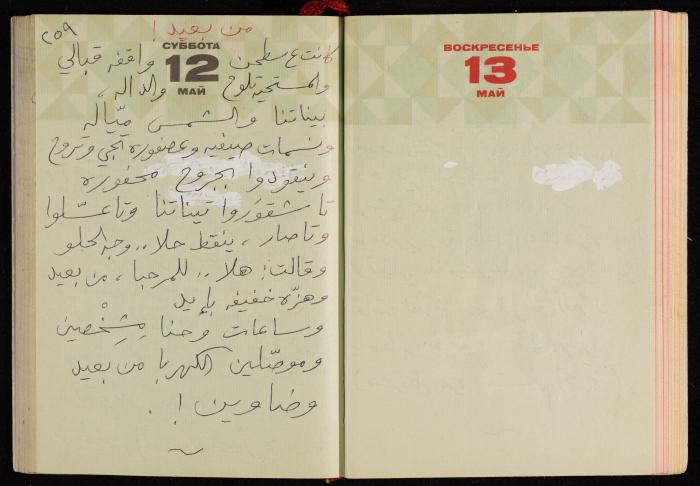 ٢٥٩
من بعيد!
СУББОТА
12
МАЙ
كانت ع سطحن واقفه قبالي
والمستحيه تلوح والداله،
بيناتنا والشمس ميّاله
ونسمات صيفيه وعصفوره تجي وتروح
وينقودوا الجروح محفوره
تا شقورَوا تيناتنا وتا عسّلوا
وتا صار، ينقط حلا.. وجه الحلو
وقالت: هلا.. للمرحبا، من بعيد
وهزّه خفيفه بإيد
وساعات وحنا مِشِخْصين
وموصّلين الكهربا من بعيد
وضاوين!.
ВОСКРЕСЕНЬЕ
13
МАЙ